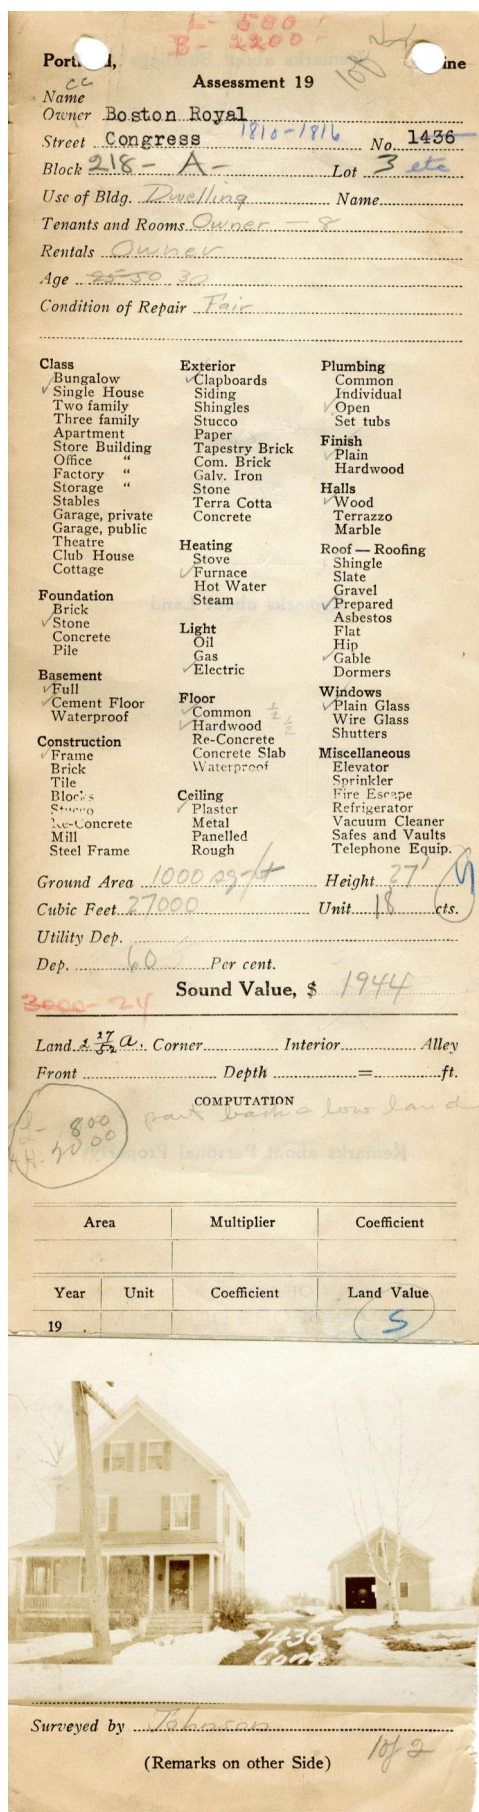 L- 500
B- 2200
Portland, Maine
Assessment 19
cc
Name
Owner Boston Royal
Street Congress 1810-1816 No. 1436
Block 218- A- Lot 3 etc
Use of Bldg. Dwelling Name
Tenants and Rooms Owner - 8
Rentals Owner
Age 25-50 30
Condition of Repair Fair
Class
Bungalow
Single House
Two family
Three family
Apartment
Store Building
Office "
Factory "
Storage "
Stables
Garage, private
Garage, public
Theatre
Club House
Cottage
Foundation
Brick
Stone
Concrete
Pile
Basement
Full
Cement Floor
Waterproof
Construction
Frame
Brick
Tile
Blocks
Stucco
Re-Concrete
Mill
Steel Frame
Exterior
Clapboards
Siding
Shingles
Stucco
Paper
Tapestry Brick
Com. Brick
Galv. Iron
Stone
Terra Cotta
Concrete
Heating
Stove
Furnace
Hot Water
Steam
Light
Oil
Gas
Electric
Floor
Common 1/2
Hardwood 1/2
Re-Concrete
Concrete Slab
Waterproof
Ceiling
Plaster
Metal
Panelled
Rough
Plumbing
Common
Individual
Open
Set tubs
Finish
Plain
Hardwood
Halls
Wood
Terrazzo
Marble
Roof — Roofing
Shingle
Slate
Gravel
Prepared
Asbestos
Flat
Hip
Gable
Dormers
Windows
Plain Glass
Wire Glass
Shutters
Miscellaneous
Elevator
Sprinkler
Fire Escape
Refrigerator
Vacuum Cleaner
Safes and Vaults
Telephone Equip.
Ground Area 1000 sq/ft Height 27'
Cubic Feet 27000 Unit 18 cts.
Utility Dep.
Dep. 60 Per cent.
Sound Value, $ 1944
3000- 24
Land 2 27/52 a. Corner Interior Alley
Front Depth = ft.
COMPUTATION
L- 800
part back is low land
H- 2000
Area Multiplier Coefficient
Year Unit Coefficient Land Value
19 S
1436
Cong
Surveyed by Johnson
(Remarks on other Side)
1 of 2